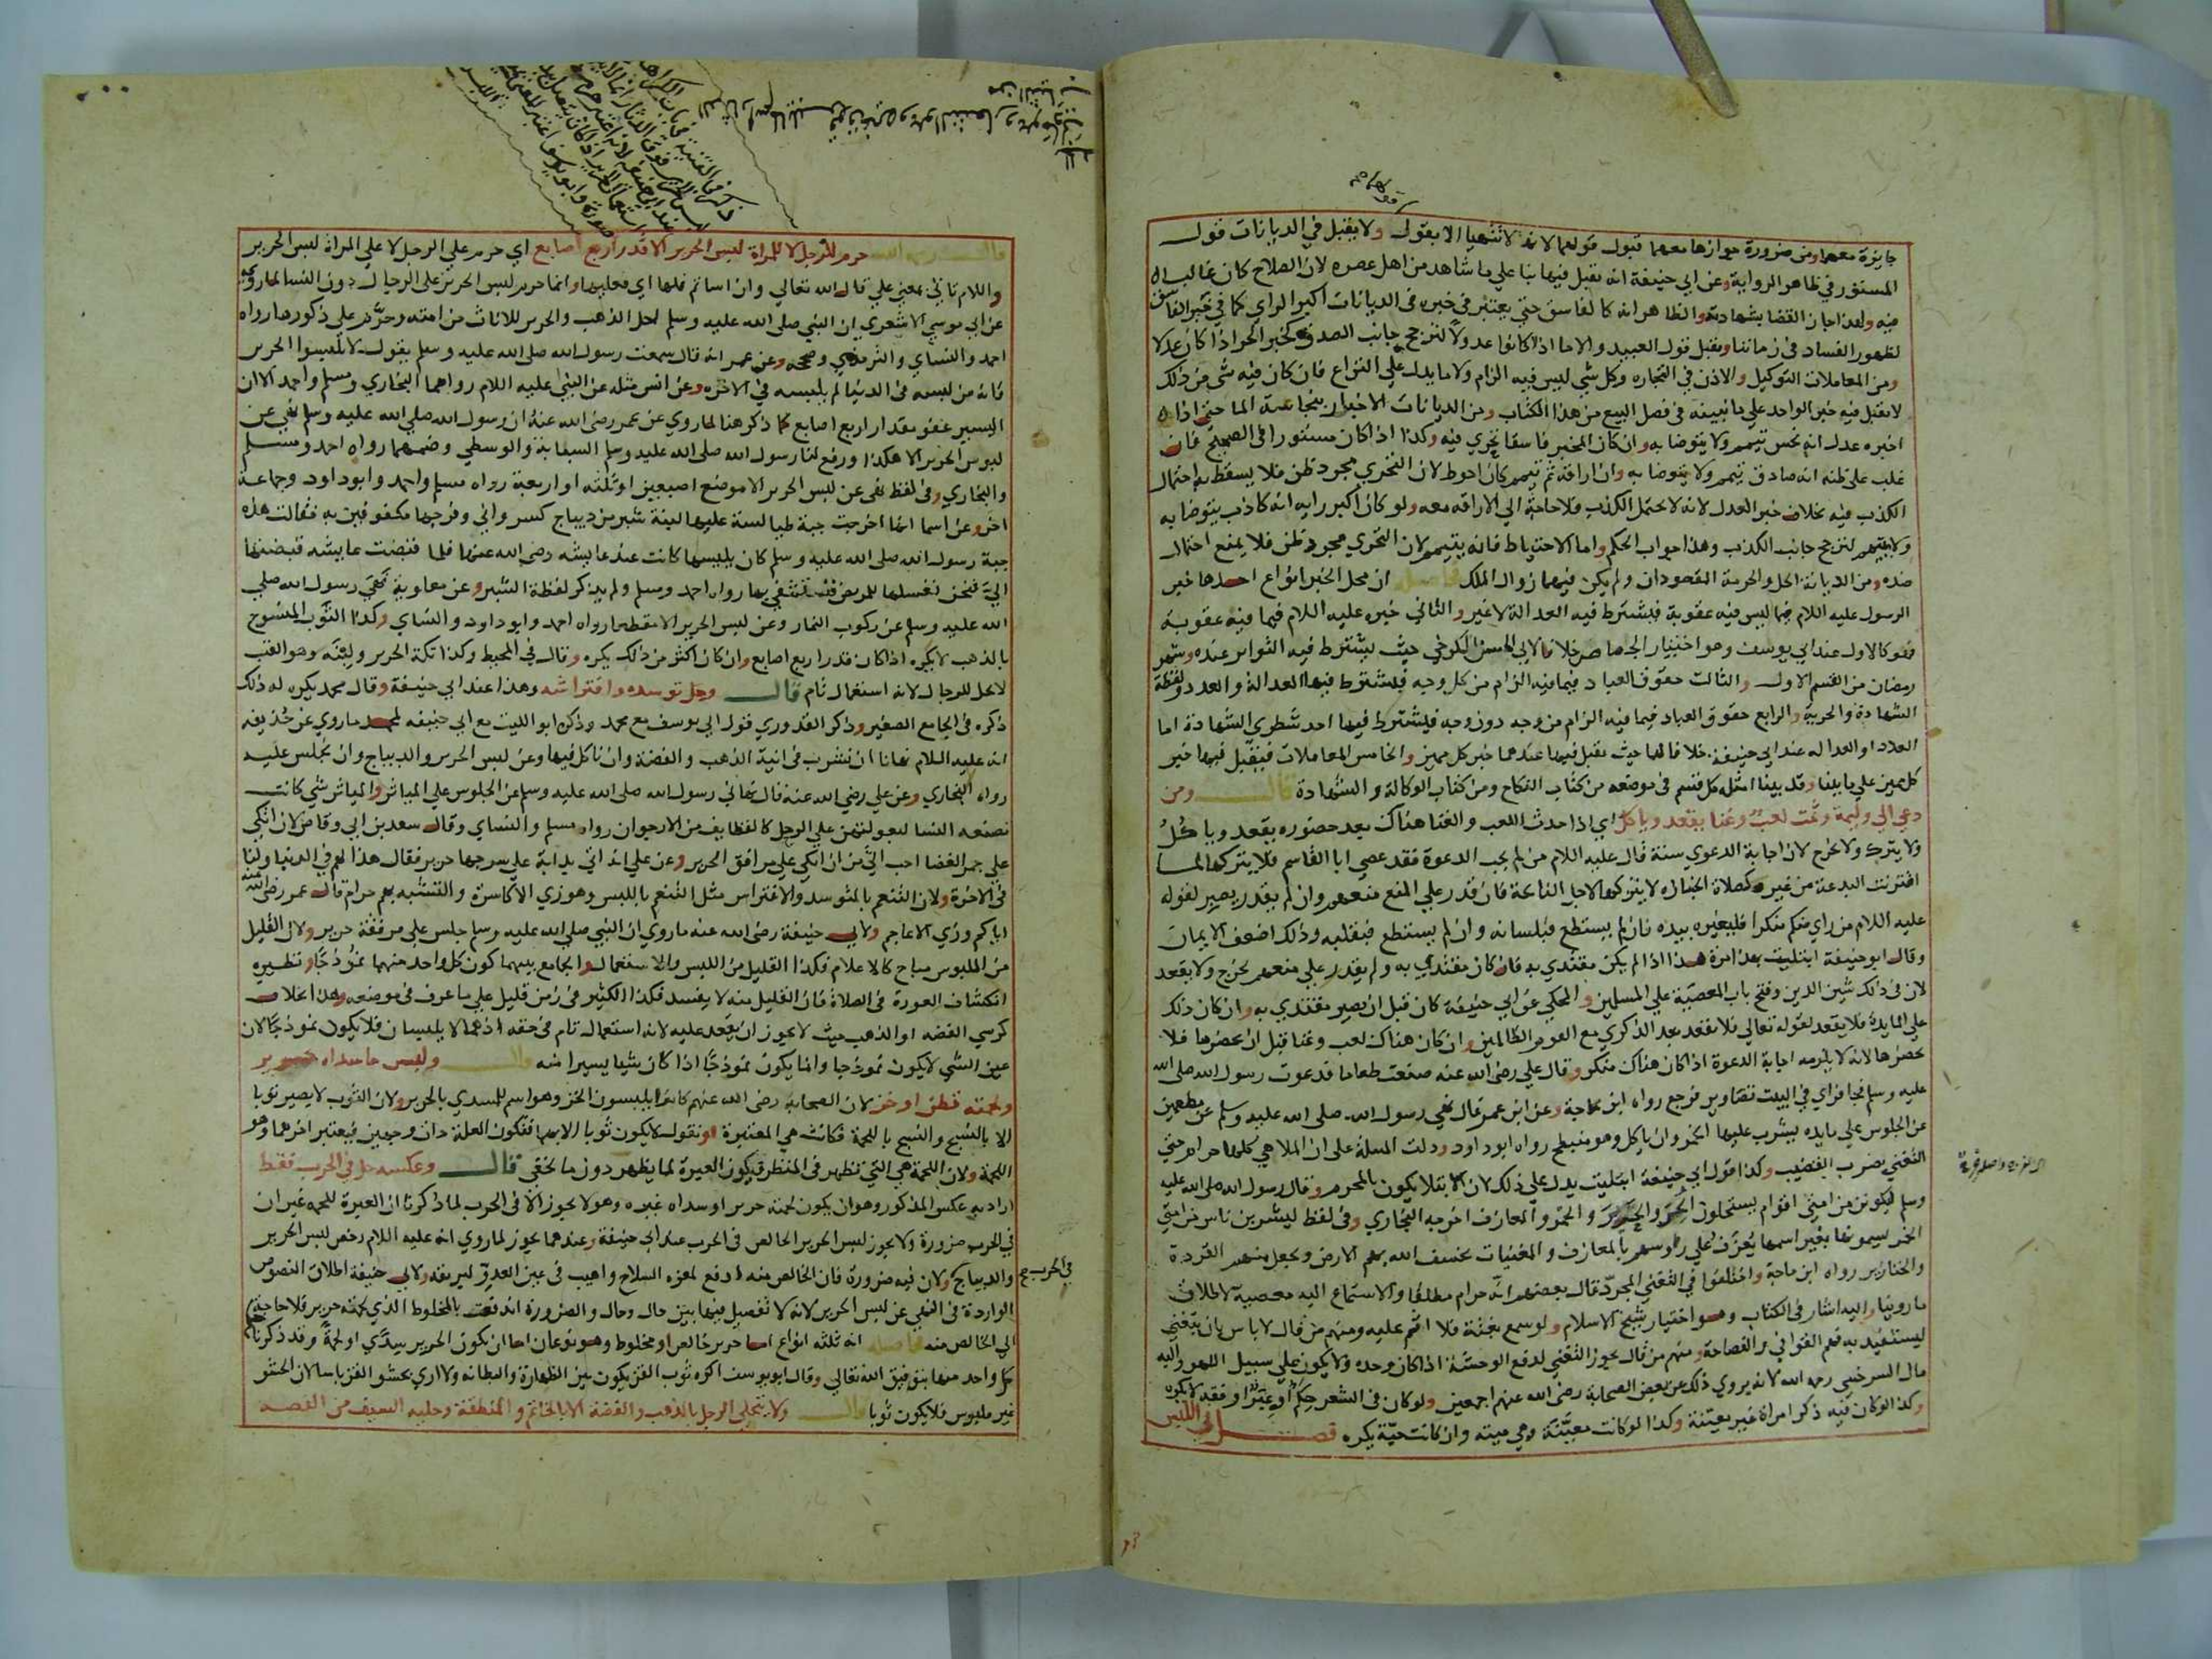 جايزة معهما ومن ضرورة جوازها معهما قبول قولهما لانه لا تتهيا الا بقول ولا يقبل في الديانات قول
المستور في ظاهر الرواية وعن ابي حنيفة انه يقبل فيها بنا علي ما شاهد من اهل عصره لان الصلاح كان غالبا
فيه ولهذا جاز القضا بشهادته والظاهر انه كالفاسق حتي يعتبر في خبره في الديانات اكبر الراي كما في خبر الفاسق
لظهور الفساد في زماننا ويقبل قول العبيد والاما اذا كانوا عدولا لترجح جانب الصدق كخبر الحر اذا كان عدلا
ومن المعاملات التوكيل والاذن في التجاره وكل شي ليس فيه الزام ولا ما يدل علي النزاع فان كان فيه شي من ذلك
لا يقبل فيه خبر الواحد علي ما نبينه في فصل البيع من هذا الكتاب ومن الديانات الاخبار بنجاسة الما حتي اذا
اخبره عدل انه نجس تيمم ولا يتوضا به وان كان المخبر فاسقا تحري فيه وكذا اذا كان مستورا في الصحيح فان
غلب علي ظنه انه صادق تيمم ولا يتوضا به وان اراقه ثم تيمم كان احوط لان التحري مجرد ظن فلا يسقط به احتمال
الكذب فيه بخلاف خبر العدل لانه لا يحتمل الكذب فلا حاجة الي الاراقه معه ولو كان اكبر رايه انه كاذب يتوضا به
ولا يتيمم لترجح جانب الكذب وهذا جواب الحكم واما الاحتياط فانه يتيمم لان التحري مجرد ظن فلا يمنع احتمال
ضده ومن الديانة الحل والحرمة اذا لم يكن فيهما زوال الملك فاصله ان محل الخبر انواع احدها خبر
الرسول عليه السلام فيما ليس فيه عقوبة فيشترط فيه العدالة لا غير والثاني خبره عليه السلام فيما فيه عقوبة
فهو كالاول عند ابي يوسف وهو اختيار الجصاص خلافا لابي الحسن الكرخي حيث يشترط فيه التواتر عنده وشهر
رمضان من القسم الاول والثالث حقوق العباد فيما فيه الزام من كل وجه فيشترط فيها العدالة والعدد ولفظة
الشهادة والحرية والرابع حقوق العباد فيما فيه الزام من وجه دون وجه فيشترط فيها احد شطري الشهادة اما
العدد او العداله عند ابي حنيفة خلافا لهما حيث يقبل فيها عندهما خبر كل مميز والخامس المعاملات فيقبل فيها خبر
كل مميز علي ما بينا وقد بينا امثلة كل قسم في موضعه من كتاب النكاح ومن كتاب الوكالة والشهادة قال ومن
دعي الي وليمة وثمت لعب وغنا يقعد وياكل اي اذا حدث اللعب والغنا هناك بعد حضوره يقعد وياكل
ولا يترك ولا يخرج لان اجابة الدعوي سنة قال عليه السلام من لم يجب الدعوة فقد عصي ابا القاسم فلا يتركها لما
اقترنت البدعة من غيره كصلاة الجنازه لا يتركها لاجل النايحة فان قدر علي المنع منعهم وان لم يقدر يصبر لقوله
عليه السلام من راي منكم منكرا فليغيره بيده فان لم يستطع فبلسانه وان لم يستطع فبقلبه وذلك اضعف الايمان
وقال ابو حنيفة ابتليت بهذا مرة هذا اذا لم يكن مقتدي به فان كان مقتدي به ولم يقدر علي منعهم يخرج ولا يقعد
لان في ذلك شين الدين وفتح باب المعصية علي المسلمين والمحكي عن ابي حنيفة كان قبل ان يصير مقتدي به وان كان ذلك
علي المايدة فلا يقعد لقوله تعالي فلا تقعد بعد الذكري مع القوم الظالمين وان كان هناك لعب وغنا قبل ان يحضرها فلا
يحضرها لانه لا يلزمه اجابة الدعوة اذا كان هناك منكر وقال علي رضي الله عنه صنعت طعاما فدعوت رسول الله صلي الله
عليه وسلم فجا فراي في البيت تصاوير فرجع رواه ابن ماجة وعن ابن عمر قال نهي رسول الله صلي الله عليه وسلم عن مطعمين
عن الجلوس علي مايده يشرب عليها الخمر وان ياكل وهو منبطح رواه ابو داود ودلت المسلة علي ان الملاهي كلها حرام حتي
التغني بضرب القضيب وكذا قول ابي حنيفة ابتليت يدل علي ذلك لان الابتلا يكون بالمحرم وقال رسول الله صلي الله عليه
وسلم ليكونن من امتي اقوام يستحلون الحر والحرير والخمر والمعازف اخرجه البخاري وفي لفظ ليشربن ناس من امتي
الخمر يسمونها بغير اسمها يعزف علي روسهم بالمعازف والمغنيات يخسف الله بهم الارض ويجعل منهم القردة
والخنازير رواه ابن ماجة واختلفوا في التغني المجرد قال بعضهم انه حرام مطلقا والاستماع اليه معصية لاطلاق
ما روينا واليه اشار في الكتاب وهو اختيار شيخ الاسلام ولو سمع بغتة فلا اثم عليه ومنهم من قال لا باس بان يتغني
ليستفيد به فهم القوافي والفصاحة ومنهم من قال يجوز التغني لدفع الوحشة اذا كان وحده ولا يكون علي سبيل اللهو واليه
مال السرخسي رحمه الله لانه يروي ذلك عن بعض الصحابة رضي الله عنهم اجمعين ولو كان في الشعر حكم او عبر او فقه لا يكره
وكذا لو كان فيه ذكر امراة غير معينة وكذا لو كانت معينة وهي ميته وان كانت حية يكره فصل في اللبس
قال رحمه الله حرم للرجل لا للمراة لبس الحرير الا قدر اربع اصابع اي حرم علي الرجل لا علي المراة لبس الحرير
واللام تاتي بمعني علي قال الله تعالي وان اساتم فلها اي فعليها وانما حرم لبس الحرير علي الرجال دون النسا لما روي
عن ابي موسي الاشعري ان النبي صلي الله عليه وسلم احل الذهب والحرير للاناث من امته وحرم علي ذكورها رواه
احمد والنساي والترمذي وصححه وعن عمر انه قال سمعت رسول الله صلي الله عليه وسلم يقول لا تلبسوا الحرير
فانه من لبسه في الدنيا لم يلبسه في الاخره وعن انس مثله عن النبي عليه السلام رواهما البخاري ومسلم واحمد الا ان
اليسير عفو مقدار اربع اصابع كما ذكر هنا لما روي عن عمر رضي الله عنه ان رسول الله صلي الله عليه وسلم نهي عن
لبوس الحرير الا هكذا ورفع لنا رسول الله صلي الله عليه وسلم السبابة والوسطي وضمهما رواه احمد ومسلم
والبخاري وفي لفظ نهي عن لبس الحرير الا موضع اصبعين او ثلثة او اربعة رواه مسلم واحمد وابو داود وجماعة
اخر وعن اسما انها اخرجت جبة طيالسة عليها لبنة شبر من ديباج كسرواني وفرجيها مكفوفين به فقالت هذه
جبة رسول الله صلي الله عليه وسلم كان يلبسها كانت عند عايشه رضي الله عنها فلما قبضت عايشه قبضتها
الي فنحن نغسلها للمريض فنستشفي بها رواه احمد ومسلم ولم يذكر لفظة الشبر وعن معاوية نهي رسول الله صلي
الله عليه وسلم عن ركوب النمار وعن لبس الحرير الا مقطعا رواه احمد وابو داود والنساي وكذا الثوب المنسوج
بالذهب لا يكره اذا كان قدر اربع اصابع وان كان اكثر من ذلك يكره وقال في المحيط وكذا تكة الحرير ولبنته وهو القب
لا يحل للرجال لانه استعمال تام قال وحل توسده وافتراشه وهذا عند ابي حنيفة وقال محمد يكره له ذلك
ذكره في الجامع الصغير وذكر القدوري قول ابي يوسف مع محمد وذكره ابو الليث مع ابي حنيفه لمحمد ما روي عن حذيفه
انه عليه السلام نهانا ان نشرب في انية الذهب والفضة وان ناكل فيها وعن لبس الحرير والديباج وان نجلس عليه
رواه البخاري وعن علي رضي الله عنه قال نهاني رسول الله صلي الله عليه وسلم عن الجلوس علي المياثر والمياثر شي كانت
تصنعه النسا لبعولتهن علي الرحل كالقطايف من الارجوان رواه مسلم والنساي وقال سعد بن ابي وقاص لان اتكي
علي جمر الغضا احب الي من ان اتكي علي مرافق الحرير وعن علي انه اتي بدابة علي سرجها حرير فقال هذا لهم في الدنيا ولنا
في الاخرة ولان التنعم بالتوسد والافتراس مثل التنعم باللبس وهو زي الاكاسرة والتشبه بهم حرام قال عمر رضي الله
اياكم وزي الاعاجم ولابي حنيفة رضي الله عنه ما روي ان النبي صلي الله عليه وسلم جلس علي مرفقة حرير ولان القليل
من الملبوس مباح كالاعلام فكذا القليل من اللبس والاستعمال والجامع بينهما كون كل واحد منهما نموذجا ونظيره
انكشاف العورة في الصلاة فان القليل منه لا يفسد فكذا الكثير في زمن قليل علي ما عرف في موضعه وهذا بخلاف
كرسي الفضه او الذهب حيث لا يجوز ان يقعد عليه لانه استعمال تام في حقه اذ هما لا يلبسان فلا يكون نموذجا لان
عين الشي لا يكون نموذجا وانما يكون نموذجا اذا كان شيا يسيرا منه قال ولبس ما سداه حرير
ولحمته قطن او خز لان الصحابة رضي الله عنهم كانوا يلبسون الخز وهو اسم للمسدي بالحرير ولان الثوب لا يصير ثوبا
الا بالنسج والنسج باللحمة فكانت هي المعتبرة او نقول لا يكون ثوبا الا بهما فتكون العلة ذات وجهين فيعتبر اخرهما وهو
اللحمة ولان اللحمة هي التي تظهر في المنظر فيكون العبرة لما يظهر دون ما يخفي قال وعكسه حل في الحرب فقط
اراد به عكس المذكور وهو ان يكون لحمته حرير او سداه غيره وهو لا يجوز الا في الحرب لما ذكرنا ان العبرة للحمه غير ان
في الحرب ضرورة ولا يجوز لبس الحرير الخالص في الحرب عند ابي حنيفة وعندهما يجوز لما روي انه عليه السلام رخص لبس الحرير
والديباج ولان فيه ضرورة فان الخالص منه ادفع لمعرة السلاح واهيب في عين العدو لبريقه ولابي حنيفة اطلاق النصوص
في الحرب صح
الواردة في النهي عن لبس الحرير لانه لا تفصيل فيها بين حال وحال والضرورة اندفعت بالمخلوط الذي لحمته حرير فلا حاجة
الي الخالص منه فاصله انه ثلثه انواع اما حرير خالص او مخلوط وهو نوعان اما ان يكون الحرير سدي او لحمة وقد ذكرنا حكم
كل واحد منها بتوفيق الله تعالي وقال ابو يوسف اكره ثوب القز يكون بين الظهارة والبطانه ولا اري بحشو القز باسا لان الحشو
غير ملبوس فلا يكون ثوبا قال ولا يتحلي الرجل بالذهب والفضة الا بالخاتم والمنطقة وحلية السيف من الفضه